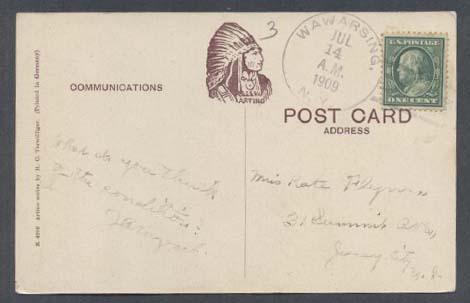 3
WAWARSING,
JUL
14
A.M.
1909
N.Y.
U.S. POSTAGE
ONE CENT
COMMUNICATIONS
ARTINO
POST CARD
ADDRESS
What do you think
of the conditions?
Miss Kate
31 Summit Ave,
Jersey City
N. J.
Artino series by H. C. Terwilliger. (Printed in Germany)